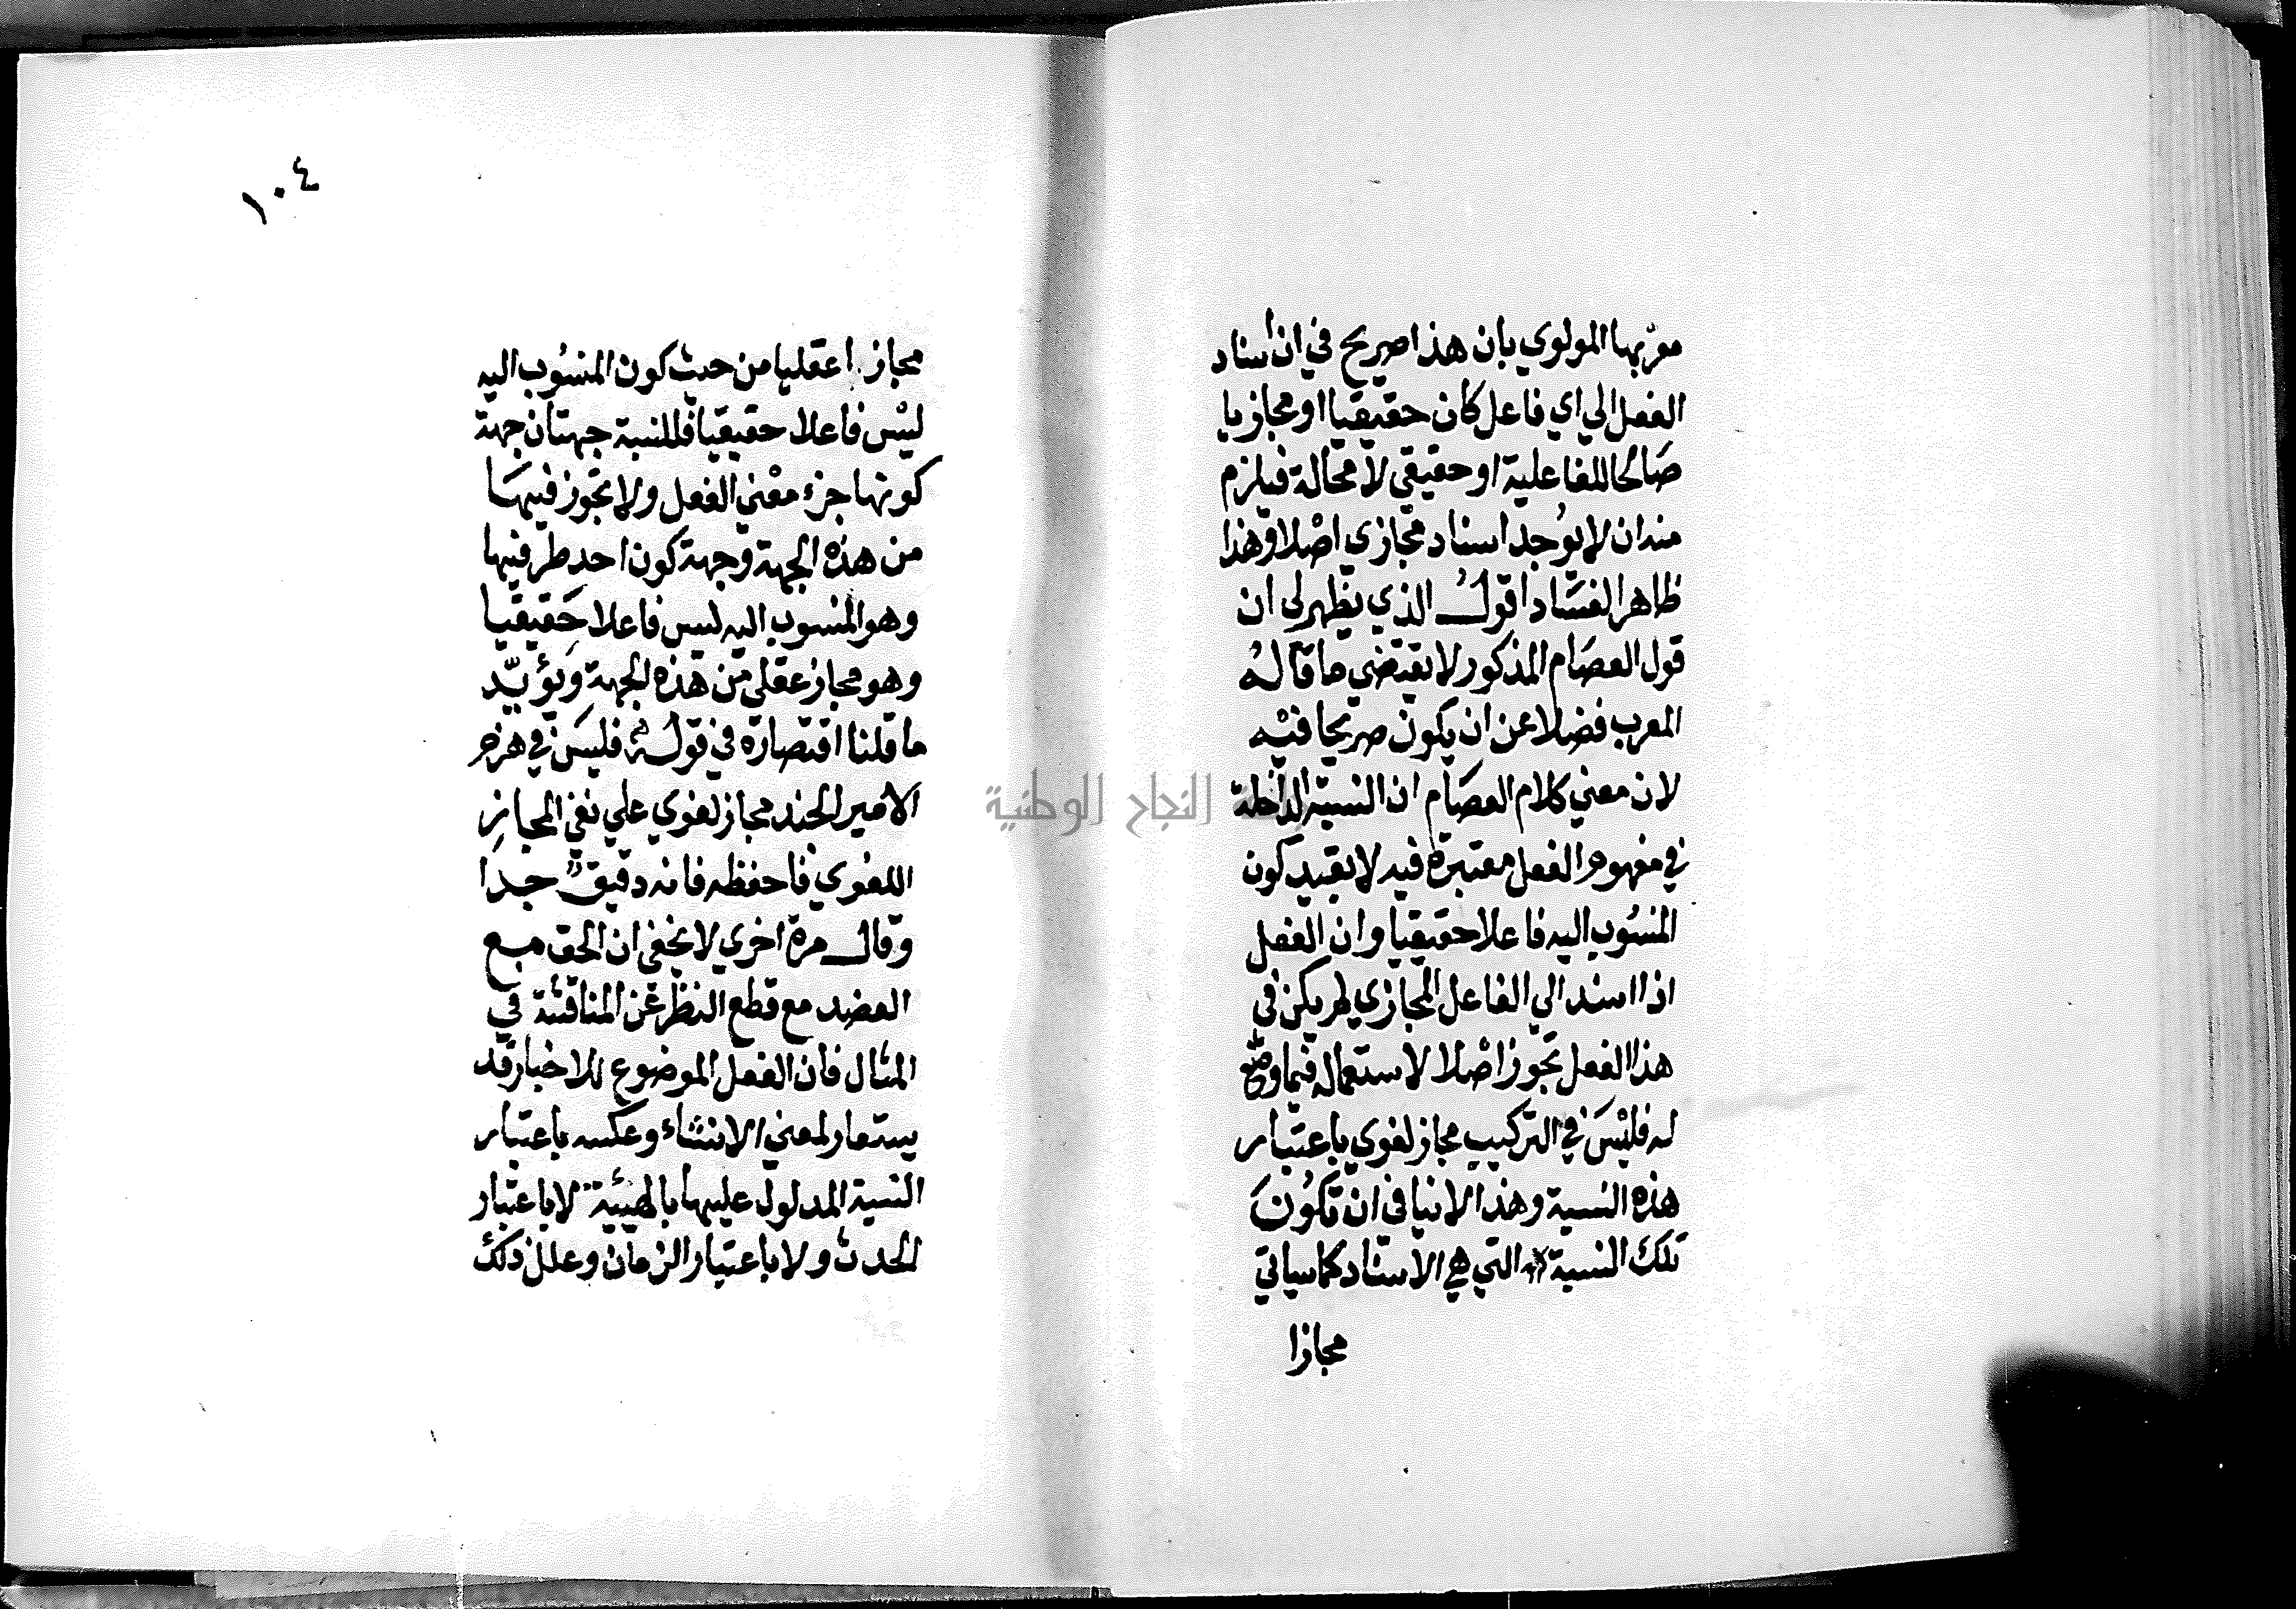 معربها المولوي بان هذا صريح في ان اسناد
الفعل الي اي فاعل كان حقيقيا او مجازيا
صالحا للفاعلية او حقيقي لا محالة فيلزم
منه ان لا يوجد اسناد مجازي اصلا وهذا
ظاهر الفساد اقول الذي يظهر لي ان
قول العصام المذكور لا يقتضي ما قاله
المعرب فضلا عن ان يكون صريحا فيه
لان معني كلام العصام ان النسبة الداخلة
في مفهوم الفعل معتبرة فيه لا بقيد كون
المنسوب اليه فاعلا حقيقيا وان الفعل
اذا اسند الي الفاعل المجازي لم يكن في
هذا الفعل تجوز اصلا لاستعماله فيما وضع
له فليس في التركيب مجاز لغوي باعتبار
هذه النسبة وهذا لا ينافي ان تكون
تلك النسبة التي هي الاسناد كما سياتي
مجازا
١٠٤
مجازا عقليا من حيث كون المنسوب اليه
ليس فاعلا حقيقيا فللنسبة جهتان جهة
كونها جزء معني الفعل ولا تجوز فيها
من هذه الجهة وجهة كون احد طرفيها
وهو المنسوب اليه ليس فاعلا حقيقيا
وهو مجاز عقلي من هذه الجهة ويؤيد
ما قلنا اقتصاره في قوله فليس في هزم
الامير الجند مجاز لغوي علي نفي المجاز
اللغوي فاحفظه فانه دقيق جدا
وقال مرة اخري لا يخفي ان الحق مع
العضد مع قطع النظر عن المناقشة في
المثال فان الفعل الموضوع للاخبار قد
يستعار لمعني الانشاء وعكسه باعتبار
النسبة المدلول عليها بالهيئة لا باعتبار
الحدث ولا باعتبار الزمان وعلل ذلك
النجاح الوطنية